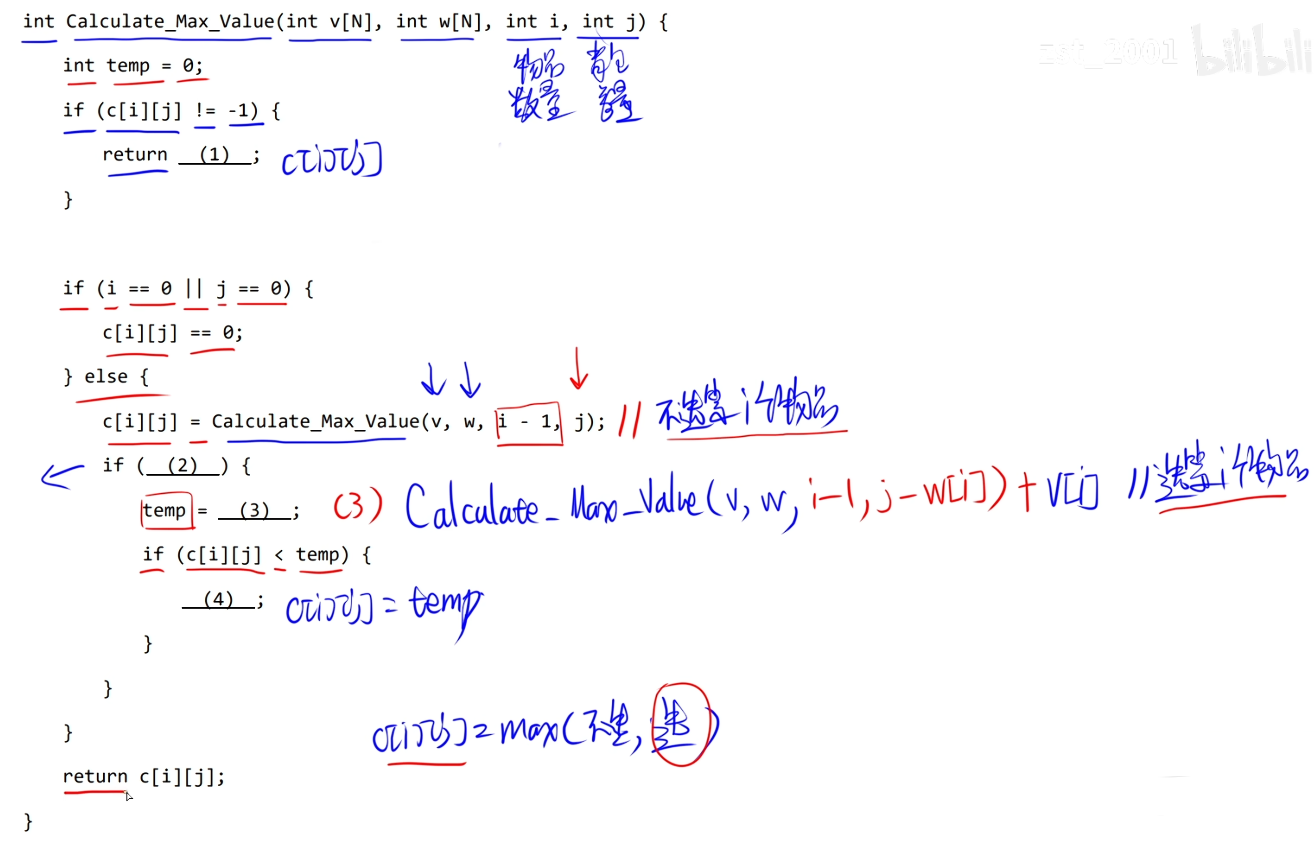 int Calculate_Max_Value(int v[N], int w[N], int i, int j) {
物品 背包
数量 容量
zst_2001 bilibili
int temp = 0;
if (c[i][j] != -1) {
return __(1)__; c[i][j]
}
if (i == 0 || j == 0) {
c[i][j] == 0;
} else {
c[i][j] = Calculate_Max_Value(v, w, i - 1, j); // 不选第i个物品
if (__(2)__) {
temp = __(3)__; (3) Calculate_Max_Value(v, w, i-1, j-w[i]) + v[i] //选第i个物品
if (c[i][j] < temp) {
__(4)__; c[i][j] = temp
}
}
} c[i][j] = max(不选, 选)
return c[i][j];
}